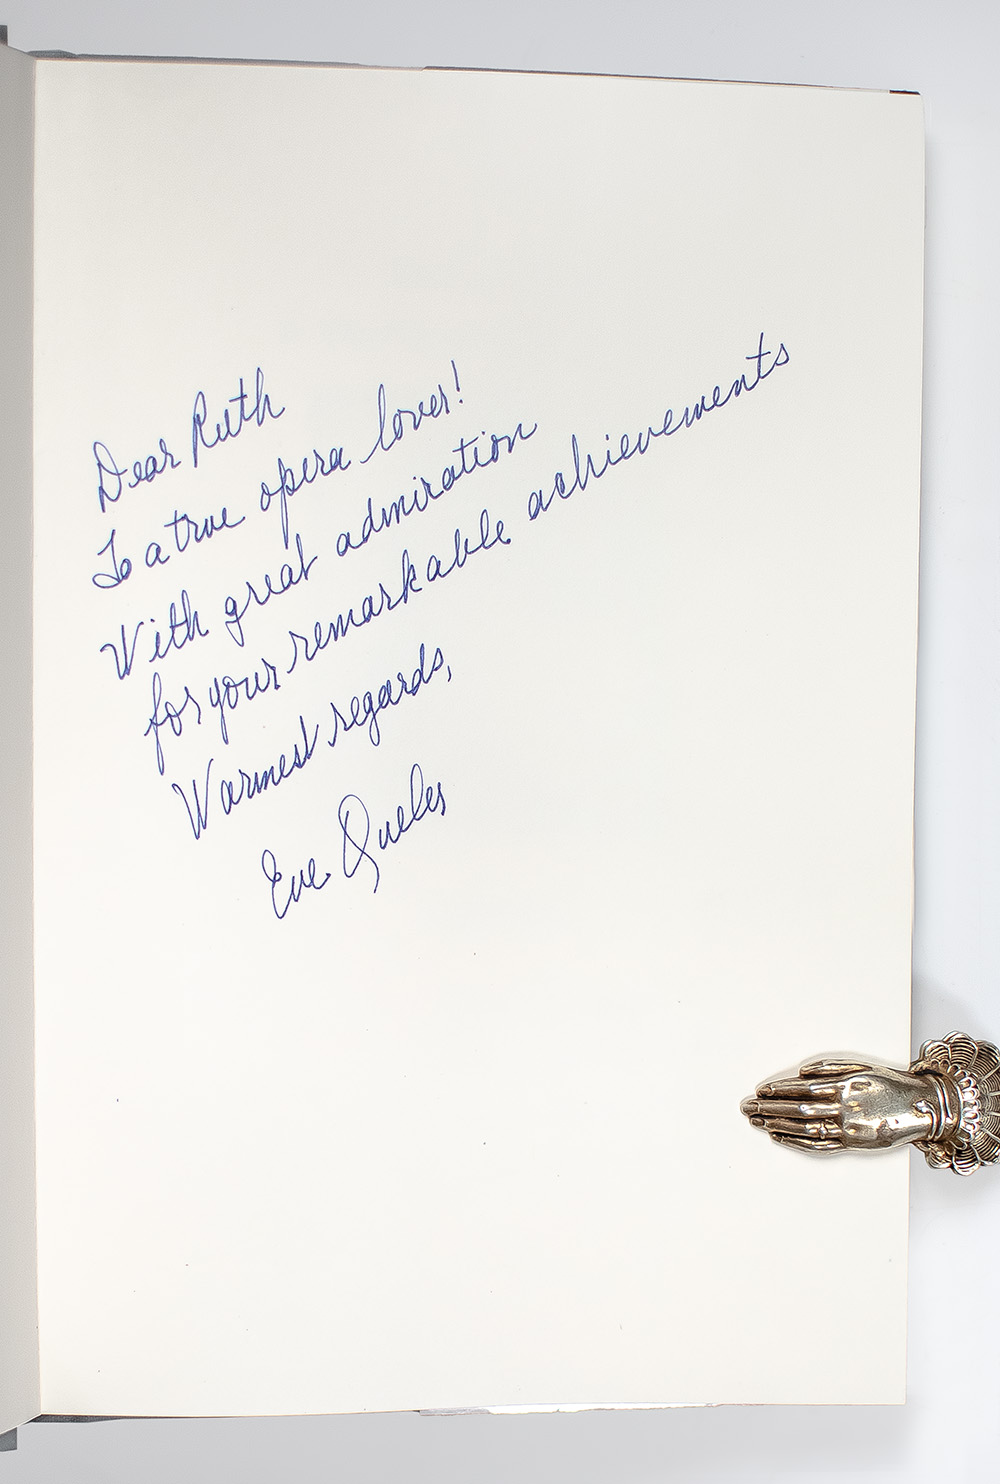 Dear Ruth
To a true opera lover!
With great admiration
for your remarkable achievements
Warmest regards,
Eve Queler